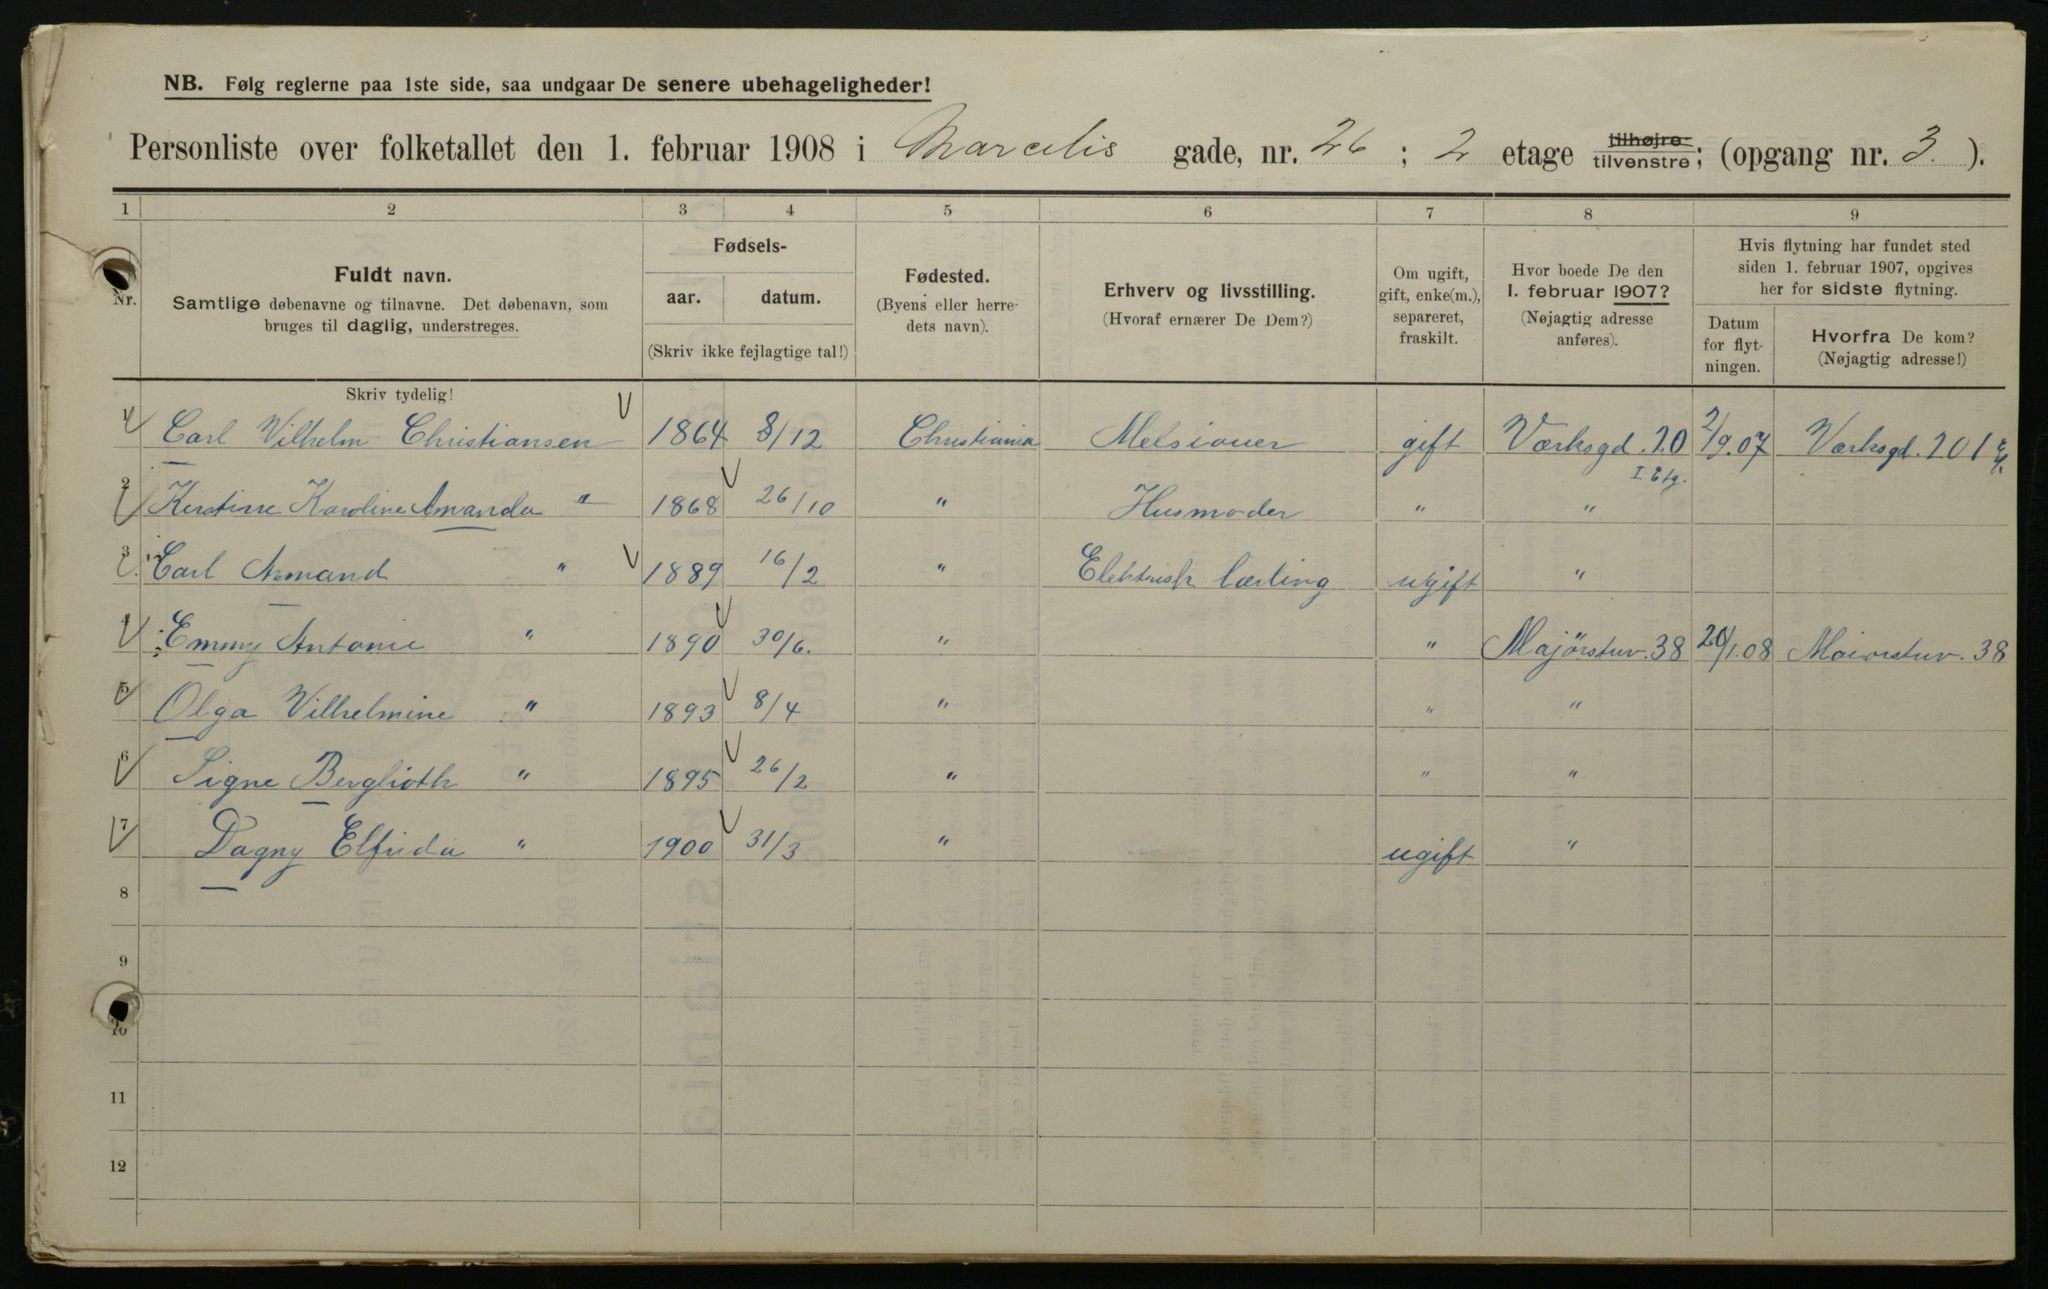 NB. Følg reglerne paa 1ste side, saa undgaar De senere ubehageligheder!
Personliste over folketallet den 1. februar 1908 i Marcelis gade, nr. 26 ; 2 etage tilhøjre tilvenstre; (opgang nr. 3. ).
1 2 3 4 5 6 7 8 9
Nr.
Fuldt navn.
Samtlige døbenavne og tilnavne. Det døbenavn, som
bruges til daglig, understreges.
Fødsels-
aar. datum.
(Skriv ikke fejlagtige tal!)
Fødested.
(Byens eller herre-
dets navn).
Erhverv og livsstilling.
(Hvoraf ernærer De Dem?)
Om ugift,
gift, enke(m.),
separeret,
fraskilt.
Hvor boede De den
1. februar 1907?
(Nøjagtig adresse
anføres).
Hvis flytning har fundet sted
siden 1. februar 1907, opgives
her for sidste flytning.
Datum
for flyt-
ningen.
Hvorfra De kom?
(Nøjagtig adresse!)
Skriv tydelig!
1 Carl Vilhelm Christiansen 1864 8/12 Christiania gift Værksgd. 20 2/9.07 Værksgd. 20 1
I Etg.
2 Kirstine Karoline Amanda " 1868 26/10 " Husmoder " "
3 Carl Armand " 1889 16/2 " Elektrisk lærling ugift "
4 Emmy Antonie " 1890 30/6. " " Majørstuv. 38 20/1.08 Maiorstuv. 38
5 Olga Vilhelmine " 1893 8/4 " " "
6 Signe Berglioth " 1895 26/2 " " "
7 Dagny Elfrida " 1900 31/3 " ugift "
8
9
10
11
12